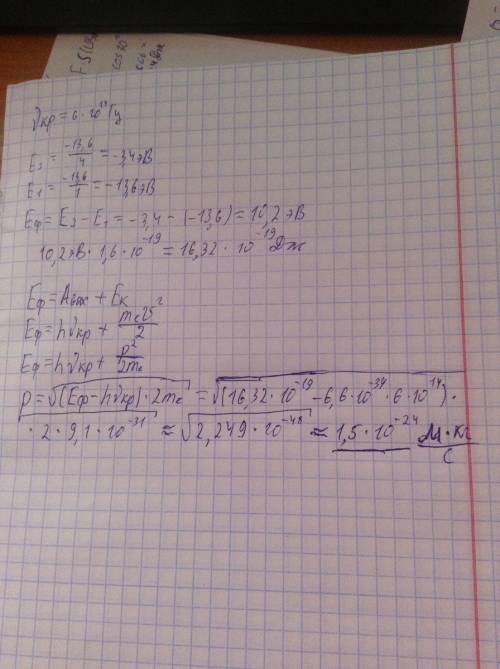 νкр = 6 · 10¹⁴ Гц
E₂ = -13,6/4 = -3,4 эВ
E₁ = -13,6/1 = -13,6 эВ
Eф = E₂ - E₁ = -3,4 - (-13,6) = 10,2 эВ
10,2 эВ · 1,6 · 10⁻¹⁹ = 16,32 · 10⁻¹⁹ Дж
Eф = Aвых + Eк
Eф = hνкр + mₑv²/2
Eф = hνкр + p²/2mₑ
p = √(Eф - hνкр) · 2mₑ = √(16,32 · 10⁻¹⁹ - 6,6 · 10⁻³⁴ · 6 · 10¹⁴) ·
· 2 · 9,1 · 10⁻³¹ ≈ √2,249 · 10⁻⁴⁸ ≈ 1,5 · 10⁻²⁴ м · кг/с